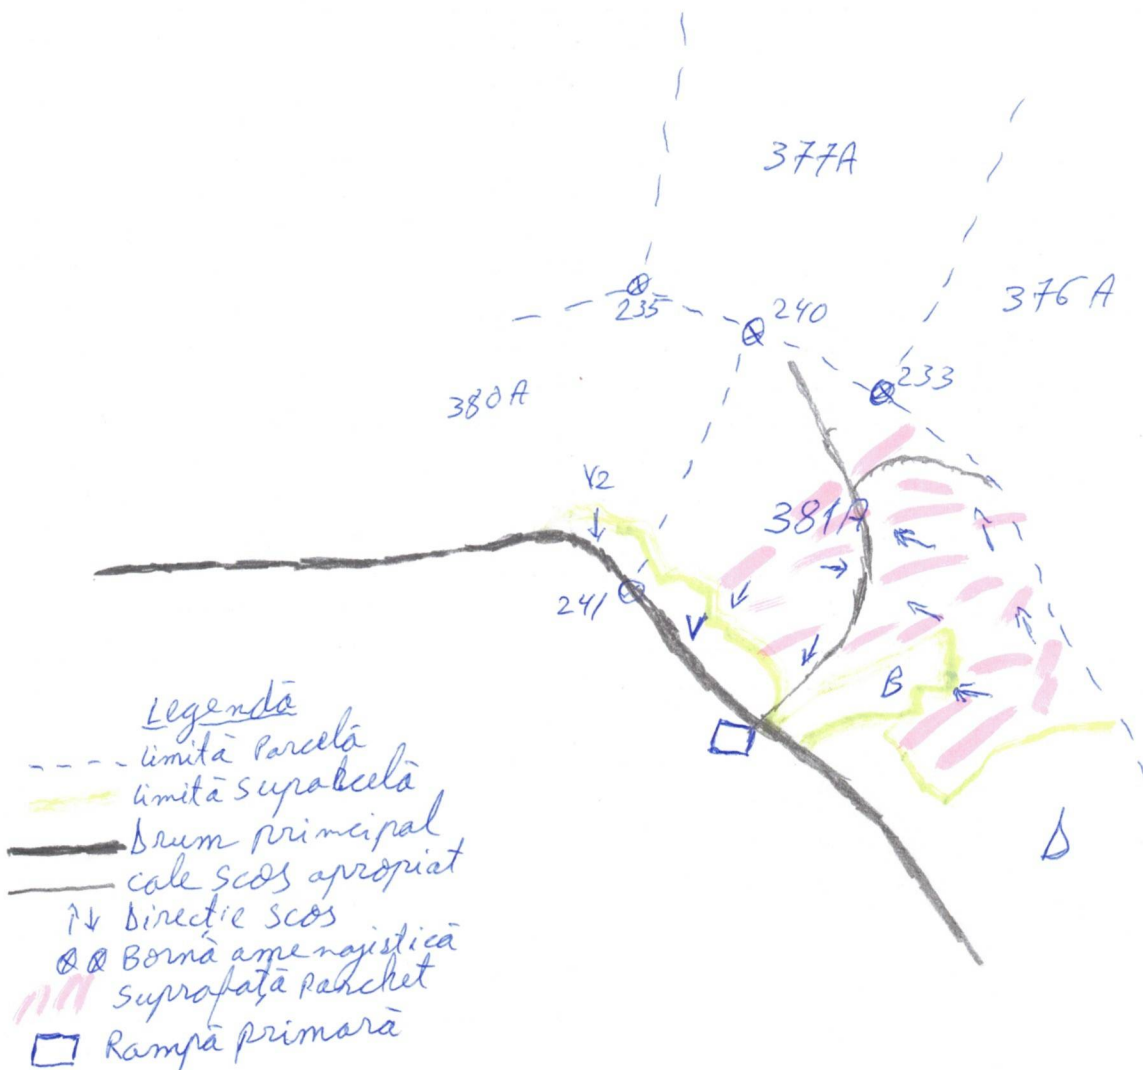 377A
376A
235
240
233
380A
V2
381A
241
V
B
D
Legendă
limită Parcelă
limită suprabcelă
Drum principal
cale scos apropiat
Direcție scos
Bornă amenajistică
Suprafață Parchet
Rampă primară